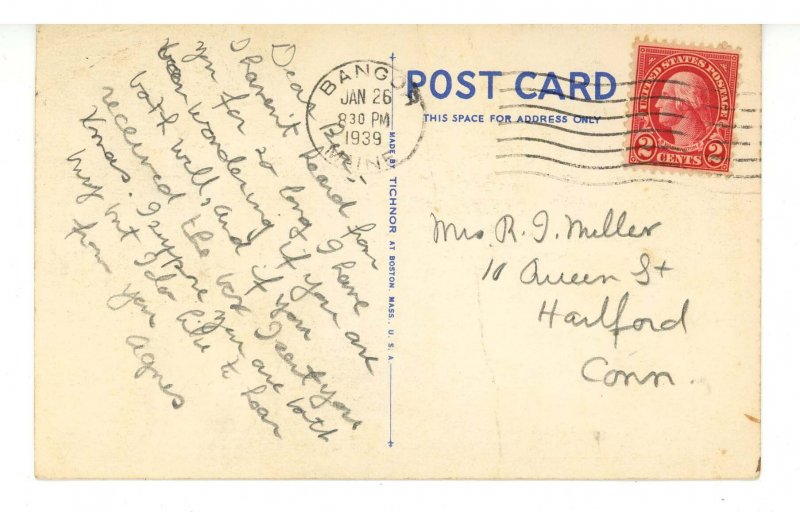 Dear B
I haven't heard from
you for so long I have
been wondering if you are
both well, and if you
received the box I sent you
Xmas. I suppose you are both
busy but I do like to hear
from you Agnes
BANGOR
JAN 26
830 PM
1939
MAINE
POST CARD
THIS SPACE FOR ADDRESS ONLY
MADE BY TICHNOR AT BOSTON, MASS., U.S.A.
UNITED STATES POSTAGE
2 CENTS 2
Mrs R. J. Miller
10 Queen St
Hartford
Conn.